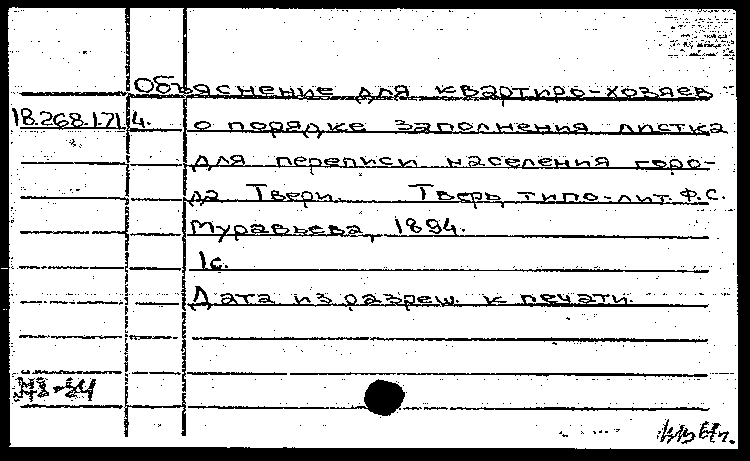 Объяснение для квартиро-хозяев
18.268.1.71 4. о порядке заполнения листка
для переписи населения горо-
да Твери. Тверь, типо-лит. Ф.С.
Муравьева, 1894.
1с.
Дата из разреш. к печати.